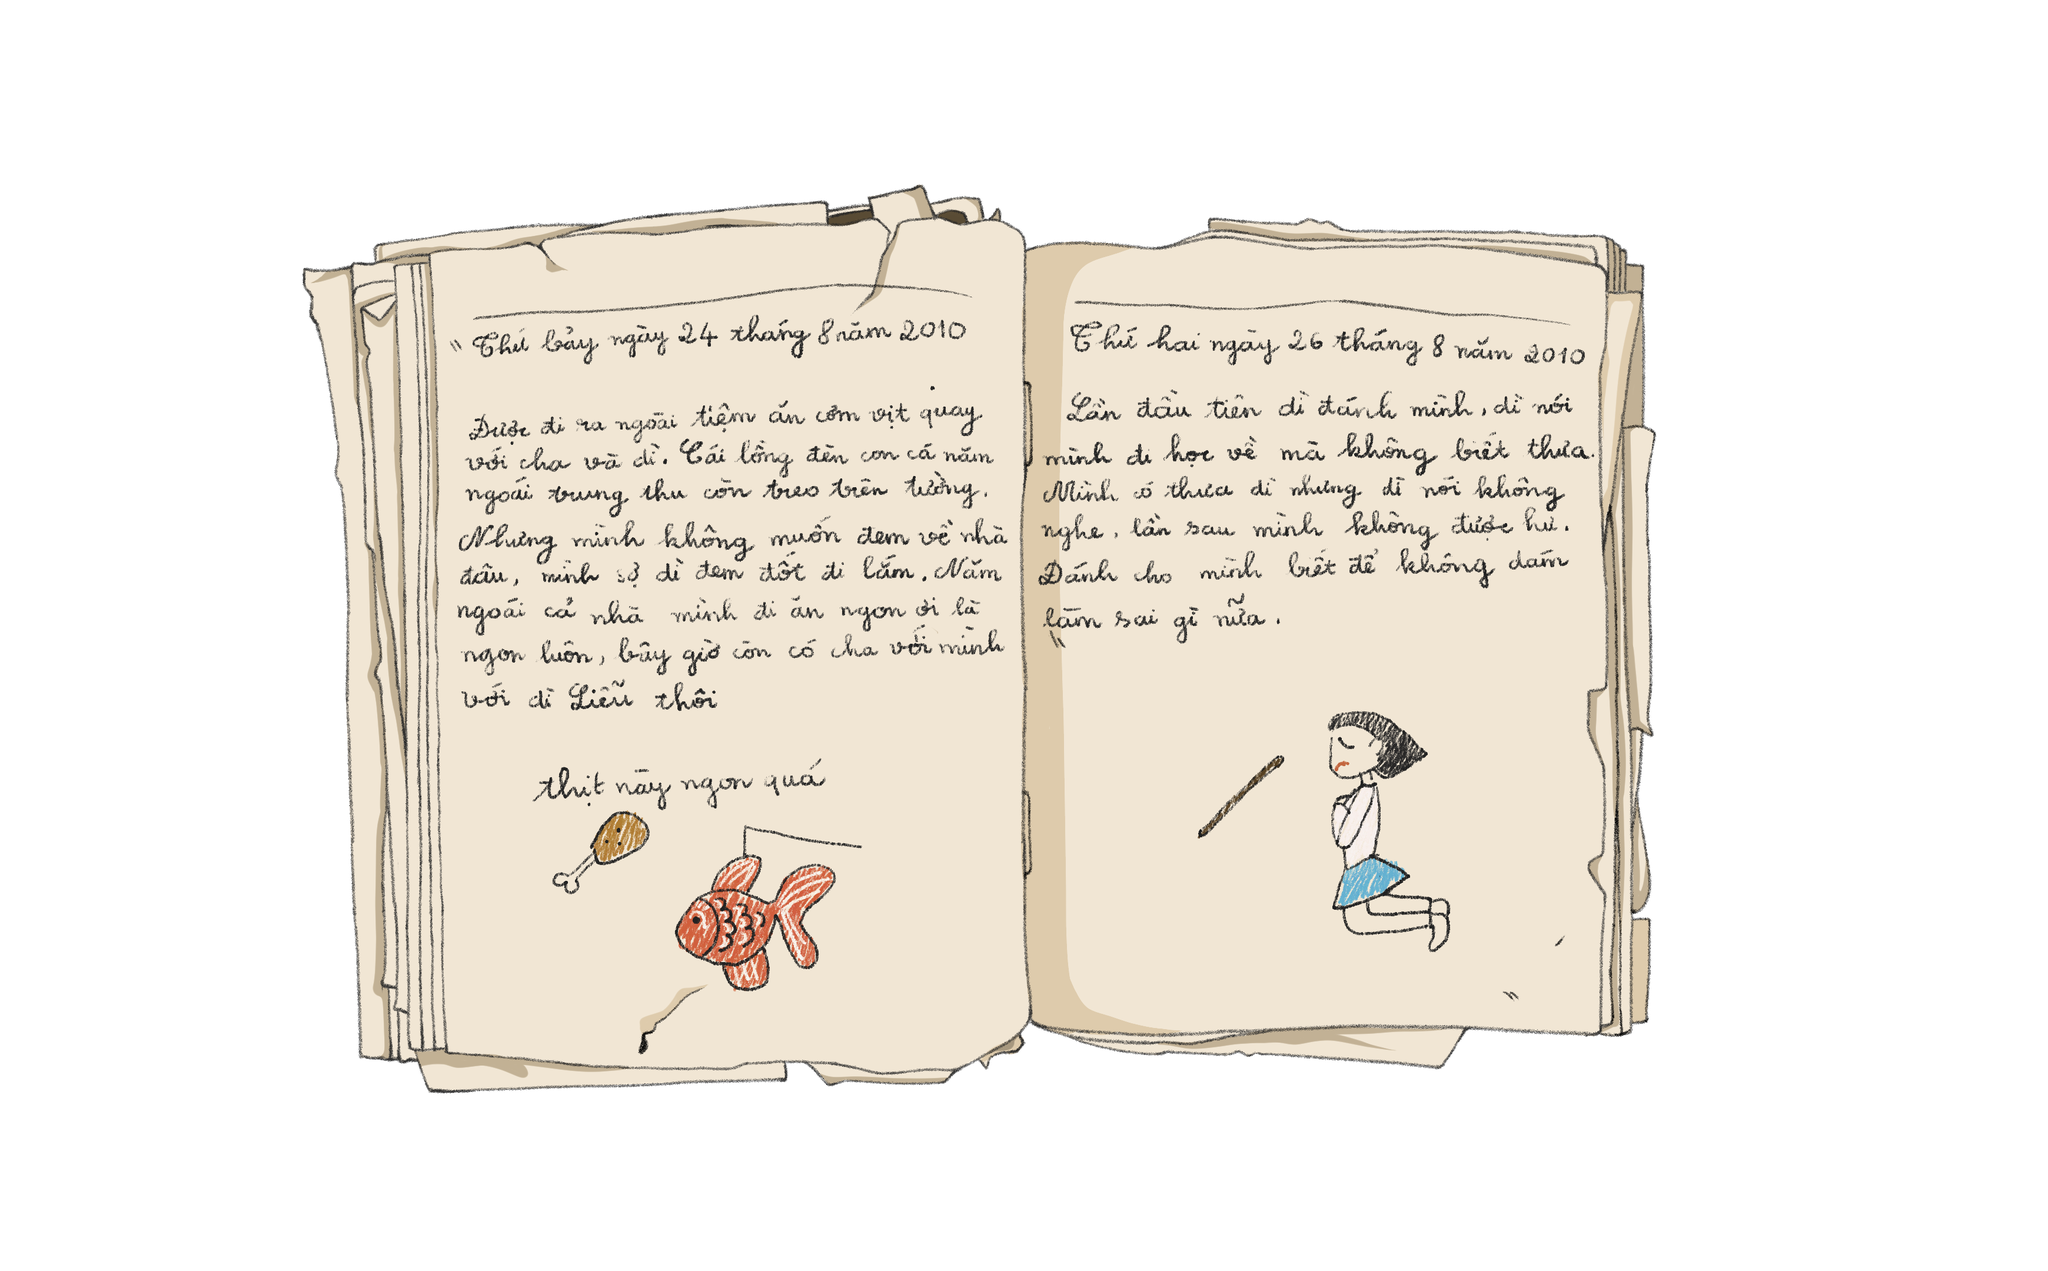 " Thứ bảy ngày 24 tháng 8 năm 2010
Được đi ra ngoài tiệm ăn cơm vịt quay
với cha và dì. Cái lồng đèn con cá năm
ngoái trung thu còn treo trên tường.
Nhưng mình không muốn đem về nhà
đâu, mình sợ dì đem đốt đi lắm. Năm
ngoái cả nhà mình đi ăn ngon ơi là
ngon luôn, bây giờ còn có cha với mình
với dì Liễu thôi
thịt này ngon quá
Thứ hai ngày 26 tháng 8 năm 2010
Lần đầu tiên dì đánh mình, dì nói
mình đi học về mà không biết thưa.
Mình có thưa dì nhưng dì nói không
nghe, lần sau mình không được hư.
Đánh cho mình biết để không dám
làm sai gì nữa.
"